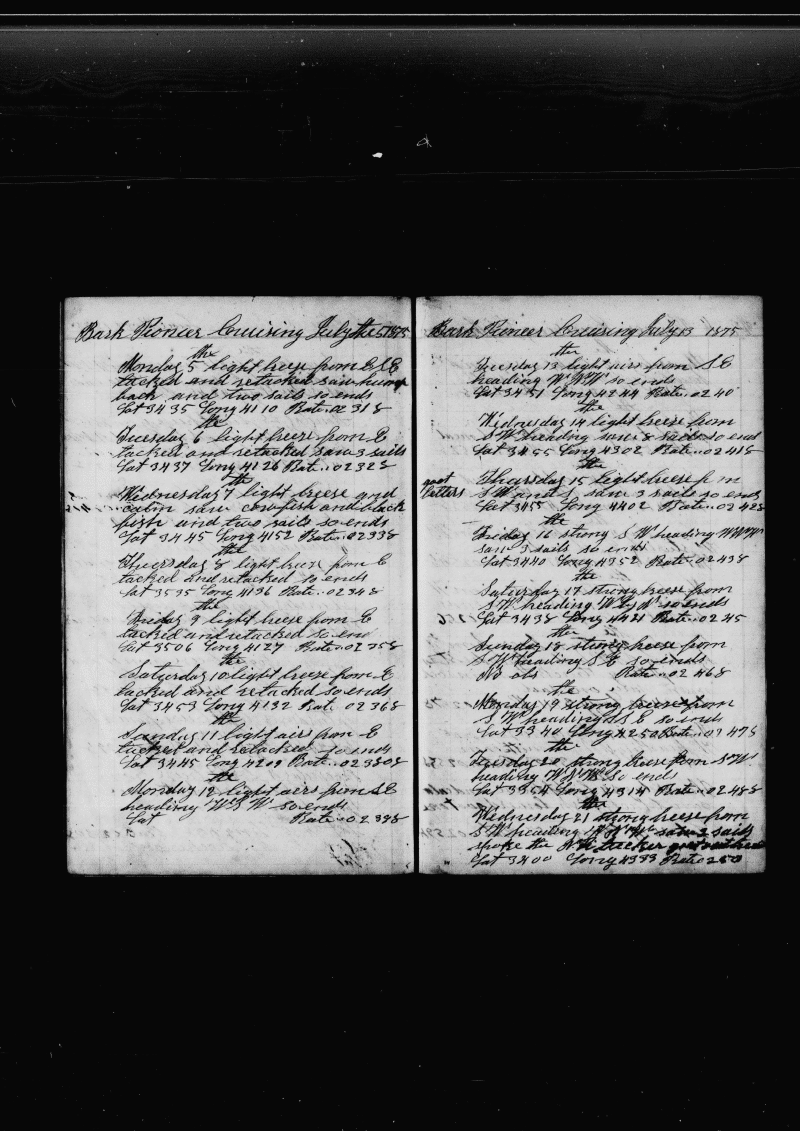 Bark Pioneer Cruising July the 5 1875
the
Monday 5 light breese from E S E
tacked and retacked saw hump
back and two sails so ends
Lat 34 35 Long 41 10 Rate .. 02 318
the
Tuesday 6 light breese from E
tacked and retacked saw 3 sails
Lat 34 37 Long 41 26 Rate .. 02 328
the
Wednesday 7 light breese and
calm saw cowfish and black
fish and two sails so ends
Lat 34 45 Long 41 52 Rate .. 02 338
the
Thursday 8 light breese from E
tacked and retacked so ends
Lat 35 35 Long 41 36 Rate .. 02 348
the
Friday 9 light breese from E
tacked and retacked so end
Lat 35 06 Long 41 27 Rate .. 02 358
the
Saturday 10 light breese from E
tacked and retacked so ends
Lat 34 53 Long 41 32 Rat 02 368
the
Sunday 11 light airs from E
tacked and retacked so ends
Lat 34 45 Long 42 09 Rate ..
the
Monday 12 light airs from S E
heading W S W so ends
Lat Rate .. 02 398
Bark Pioneer Cruising July 13 1875
the
Tuesday 13 light airs from S E
heading W S W so ends
Lat 34 51 Long 42 44 Rate .. 02 40
the
Wednesday 14 light breese from
S W heading saw 8 sails so ends
Lat 34 55 Long 43 02 Rate .. 02 418
the
goot
letters
Thursday 15 light breese f m
S W and S saw 3 sails so ends
Lat 34 55 Long 44 02 Rate .. 02 428
the
Friday 16 strong S W heading
saw 3 sails so ends
Lat 34 40 Long 43 52 Rate .. 02 438
the
Saturday 17 strong breese from
S W heading W by N so ends
Lat 34 38 Long 44 21 Rate .. 02 45
the
Sunday 18 strong breese from
S W heading S E so ends
No obs Rate .. 02 468
the
Monday 19 strong breese from
S W heading S S E so ends
Lat 33 40 Long 42 50 Rate .. 02 478
the
Tuesday 20 strong breese from S W
heading W N W so ends
Lat 33 54 Long 43 14 Rate .. 02 488
the
Wednesday 21 strong breese from
S W heading saw 2 sails
spoke the
Lat 34 00 Long 43 33 Rate 02 50